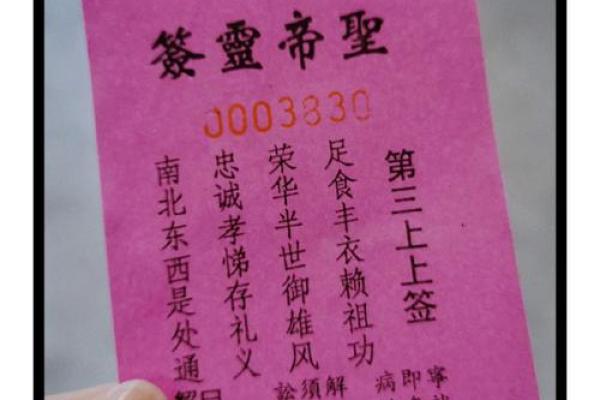 簽靈帝聖
0003830
第三上上签
足食丰衣赖祖功
荣华半世御雄风
忠诚孝悌存礼义
南北东西是处通